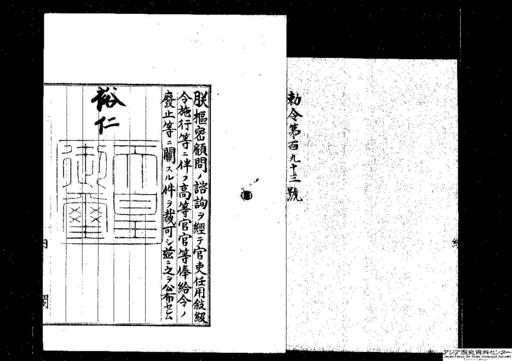 勅令第百九十三號
朕樞密顧問ノ諮詢ヲ經テ官吏任用敍級
令施行等ニ伴フ高等官官等俸給令ノ
廢止等ニ關スル件ヲ裁可シ茲ニ之ヲ公布セシム
裕仁
天皇
御璽
内閣
アジア歴史資料センター